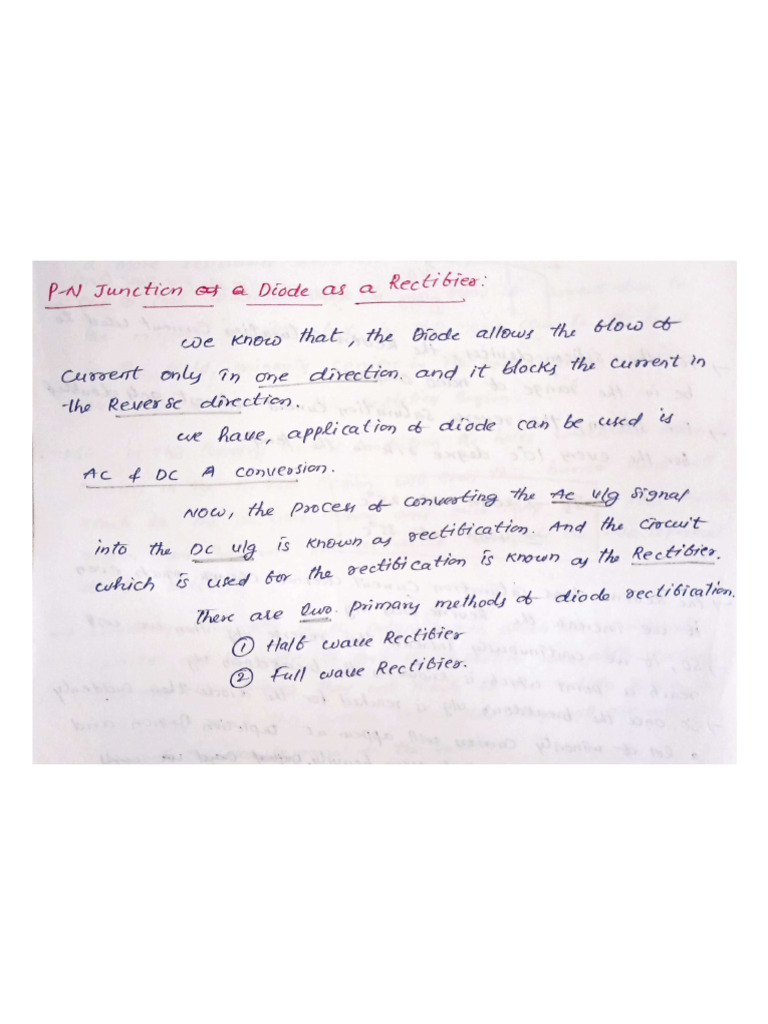 P-N Junction of a Diode as a Rectifier:
we know that, the Diode allows the flow of
current only in one direction. and it blocks the current in
the Reverse direction.
we have, application of diode can be used is
AC & DC A conversion.
Now, the process of converting the Ac v/g signal
into the DC v/g is known as rectification. And the circuit
which is used for the rectification is known as the Rectifier.
There are two primary methods of diode rectification.
① Half wave Rectifier
② Full wave Rectifier.